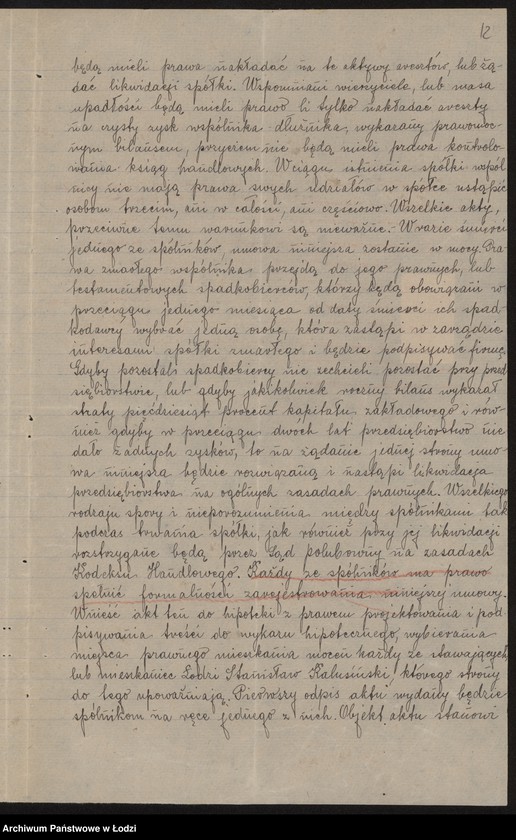 12
będą mieli prawa nakładać na te aktywy aresztów, lub żą-
dać likwidacji spółki. Wspomniani wierzyciele, lub masa
upadłości będą mieli prawo li tylko nakładać areszty
na czysty zysk wspólnika-dłużnika, wykazany prawomoc-
nym bilansem, przyczem nie będą mieli prawa kontrolo-
wania ksiąg handlowych. W ciągu istnienia spółki wspól-
nicy nie mają prawa swych udziałów w spółce ustąpić
osobom trzecim, ani w całości, ani częściowo. Wszelkie akty,
przeciwne temu warunkowi są nieważne. W razie śmierci
jednego ze spólników, umowa niniejsza zostanie w mocy. Pra-
wa zmarłego wspólnika przejdą do jego prawnych, lub
testamentowych spadkobierców, którzy będą obowiązani w
przeciągu jednego miesiąca od daty śmierci ich spad-
kodawcy wybrać jedną osobę, która zastąpi w zarządzie
interesami spółki zmarłego i będzie podpisywać firmę.
Gdyby pozostali spadkobiercy nie zechcieli pozostać przy przed-
siębiorstwie, lub gdyby jakikolwiek roczny bilans wykazał
straty pięćdziesiąt procent kapitału zakładowego i rów-
nież gdyby w przeciągu dwóch lat przedsiębiorstwo nie
dało żadnych zysków, to na żądanie jednej strony umo-
wa niniejsza będzie rozwiązaną i nastąpi likwidacja
przedsiębiorstwa na ogólnych zasadach prawnych. Wszelkiego
rodzaju spory i nieporozumienia między spólnikami tak
podczas trwania spółki, jak również przy jej likwidacji
rozstrzygane będą przez Sąd polubowny na zasadach
Kodeksu Handlowego. Każdy ze spólników ma prawo
spełnić formalności zarejestrowania niniejszej umowy.
Wnieść akt ten do hipoteki z prawem projektowania i pod-
pisywania treści do wykazu hipotecznego, wybierania
miejsca prawnego mieszkania mocen każdy ze stawających,
lub mieszkaniec Łodzi Stanisław Kalusiński, którego strony
do tego upoważniają. Pierwszy odpis aktu wydany będzie
spólnikom na ręce jednego z nich. Objekt aktu stanowi
Archiwum Państwowe w Łodzi